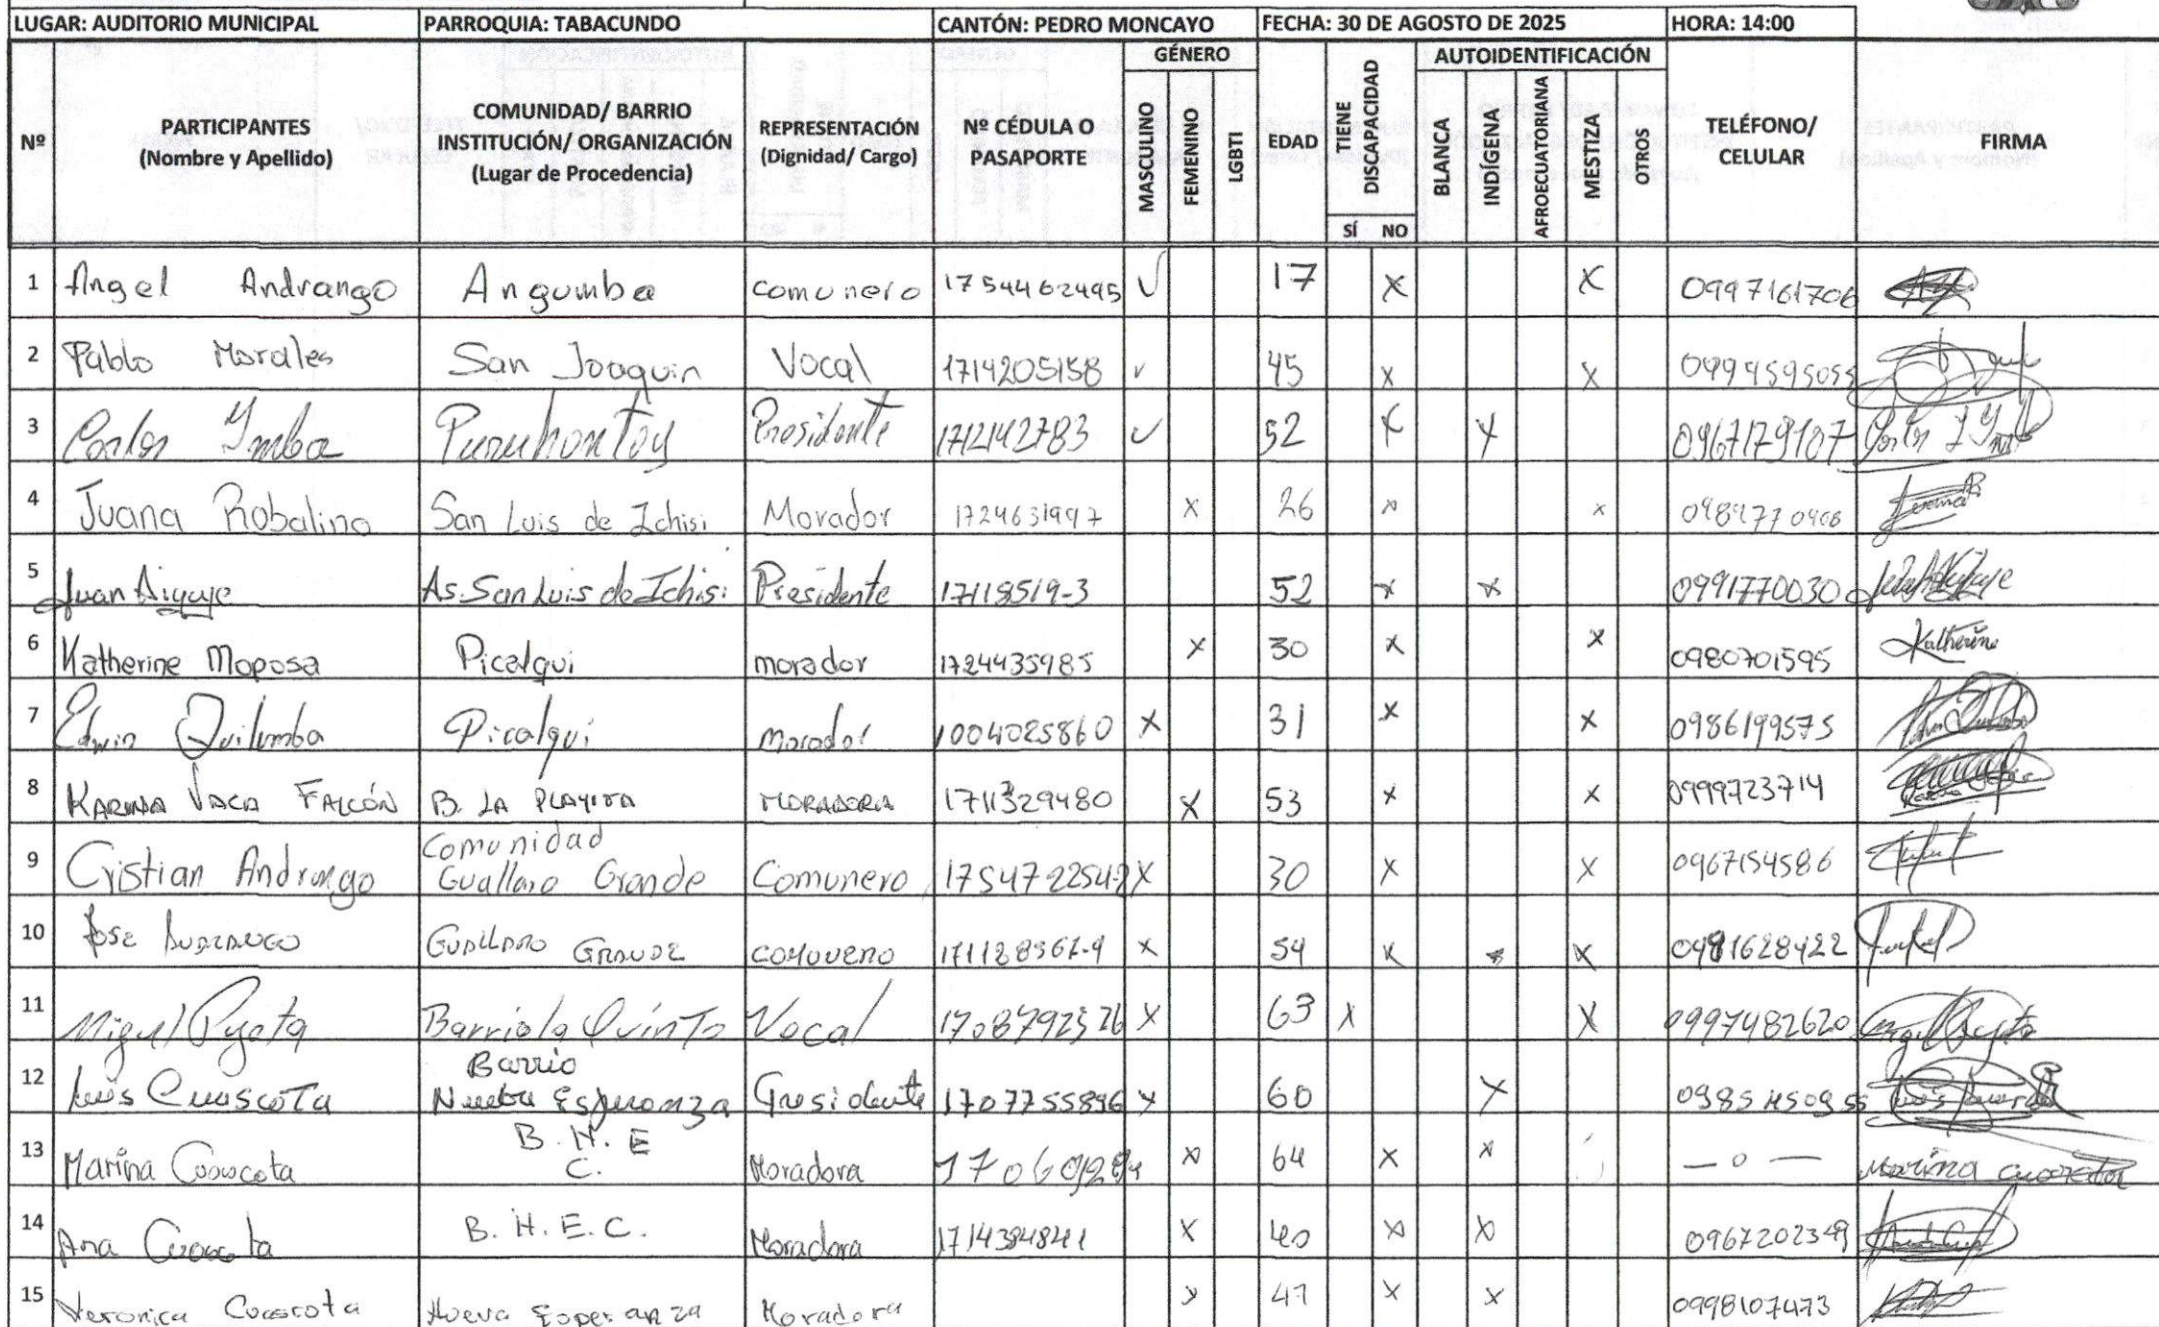 LUGAR: AUDITORIO MUNICIPAL PARROQUIA: TABACUNDO CANTÓN: PEDRO MONCAYO FECHA: 30 DE AGOSTO DE 2025 HORA: 14:00
Nº PARTICIPANTES (Nombre y Apellido) COMUNIDAD/ BARRIO INSTITUCIÓN/ ORGANIZACIÓN (Lugar de Procedencia) REPRESENTACIÓN (Dignidad/ Cargo) Nº CÉDULA O PASAPORTE GÉNERO MASCULINO FEMENINO LGBTI EDAD TIENE DISCAPACIDAD SÍ NO AUTOIDENTIFICACIÓN BLANCA INDÍGENA AFROECUATORIANA MESTIZA OTROS TELÉFONO/ CELULAR FIRMA
1 Angel Andrango Angumba comunero 1754462495 ✓ 17 X X 0997161706
2 Pablo Morales San Joaquin Vocal 1714205158 ✓ 45 X X
3 Carlos Imba Puruhantoy Presidente 1712142783 ✓ 52 X X 0967179107
4 Juana Robalino San Luis de Ichisi Morador 1724631997 X 26 X X
5 Juan Aiguaje As. San Luis de Ichisi Presidente 17118519-3 52 X X 0991770030
6 Katherine Moposa Picalqui morador 1724435985 X 30 X X 0980701595 Katherine
7 Edwin Quilumba Picalqui morador 1004025860 X 31 X X 0986199575
8 KARINA VACA FALCÓN B. LA PLAYITA MORADORA 1711329480 X 53 X X 0999723714
9 Cristian Andrango Comunidad Guallaro Grande Comunero X 30 X X 0967154586
10 Jose GRANDE COMUNERO X 54 X X 0981628422
11 Miguel Pujota Barrio la Quinta Vocal 1708792326 X 63 X X 0997482620
12 Luis Cuascota Barrio Nueva Esperanza Presidente 1707755896 X 60 X
13 Marina Cuascota B. N. E C. Moradora X 64 X X — o — Marina Cuascota
14 Ana Cuascota B. N. E. C. Moradora X 40 X X 0967202349
15 Veronica Cuascota Nueva Esperanza Moradora X 47 X X 0998107473